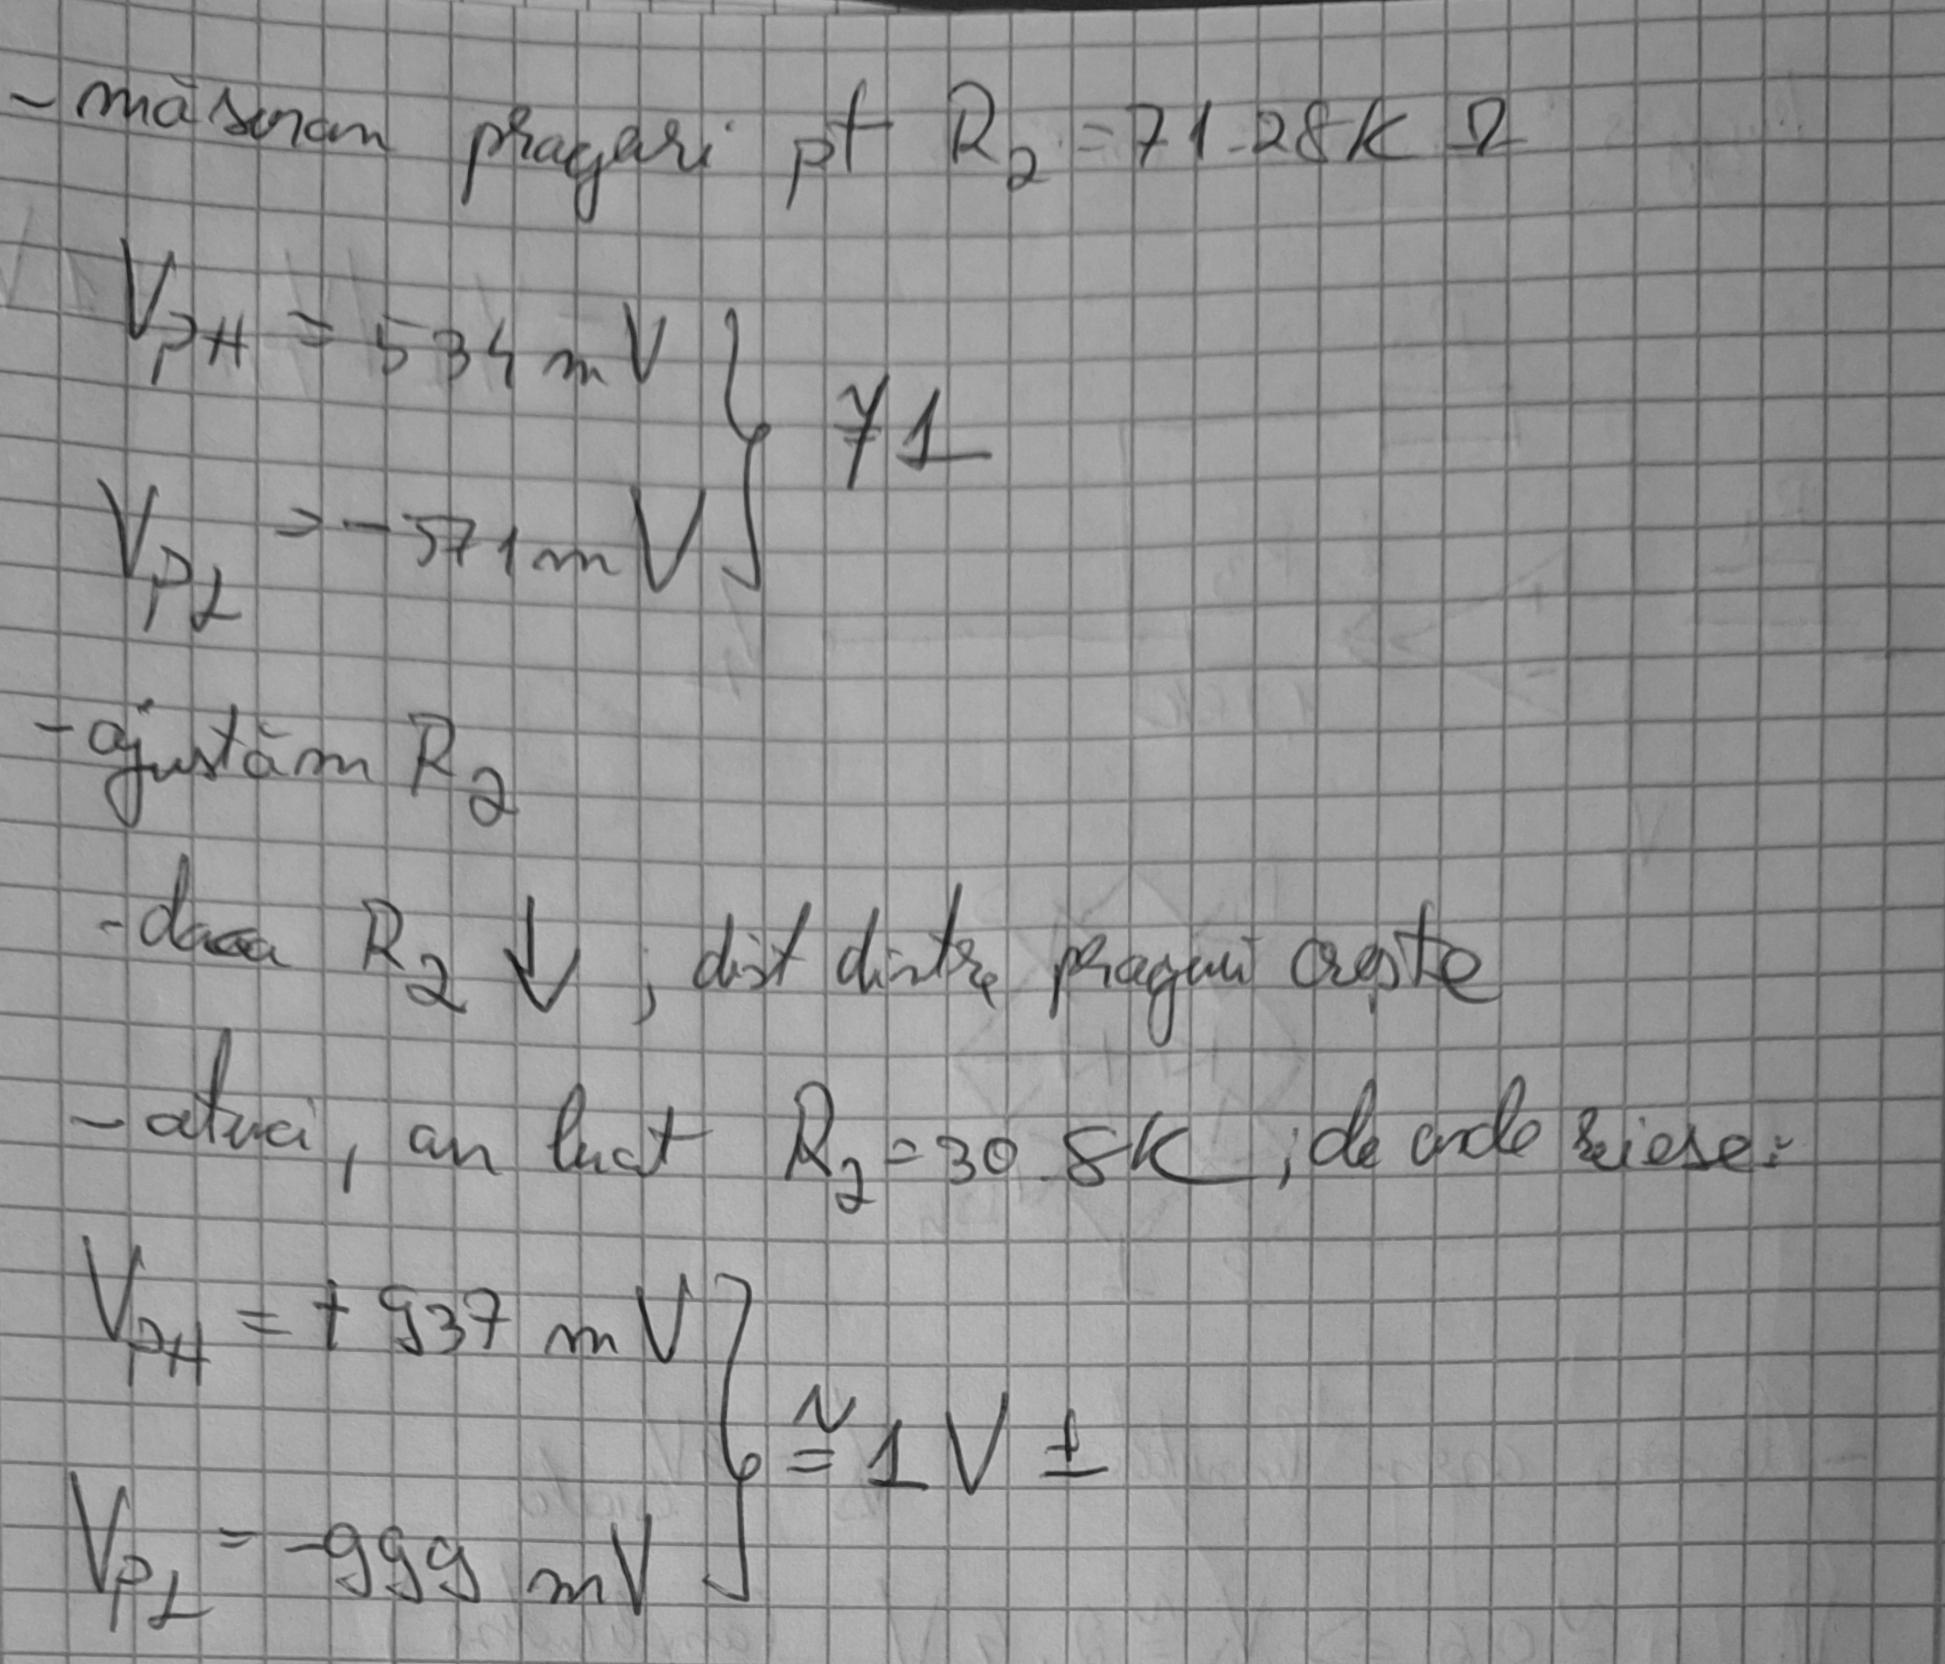 - măsuram praguri pt R₂ = 71.28K Ω
V_PH = 534 mV
≠ 1
V_PL = -571 mV
- ajustăm R₂
- daca R₂ ↓ ; dist dintre praguri crește
- atuci, an luat R₂ = 30.8K ; de unde reiese:
V_PH = + 937 mV
≅ 1 V ±
V_PL = -999 mV